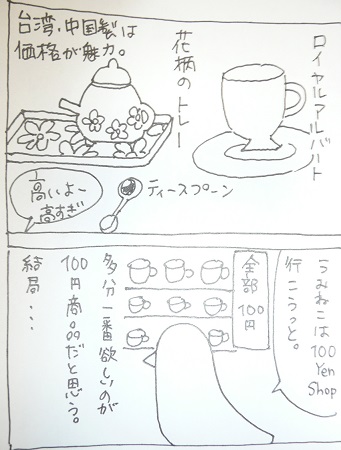 ロイヤルアルバート
花柄のトレー
台湾・中国製は
価格が魅力。
ティースプーン
高いよ〜
高すぎ
うみねこは100
Yen
Shop
行こうっと。
全部100円
多分一番欲しいのが
100円商品だと思う。
結局...